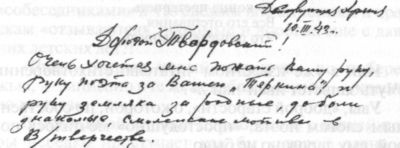 Действующая Армия
10.III.43 г.
Дорогой Твардовский!
Очень хочется мне пожать Вашу руку,
руку поэта за Вашего „Теркина“, и
руку земляка за родные, до боли
знакомые, смоленские мотивы в
В/творчестве.